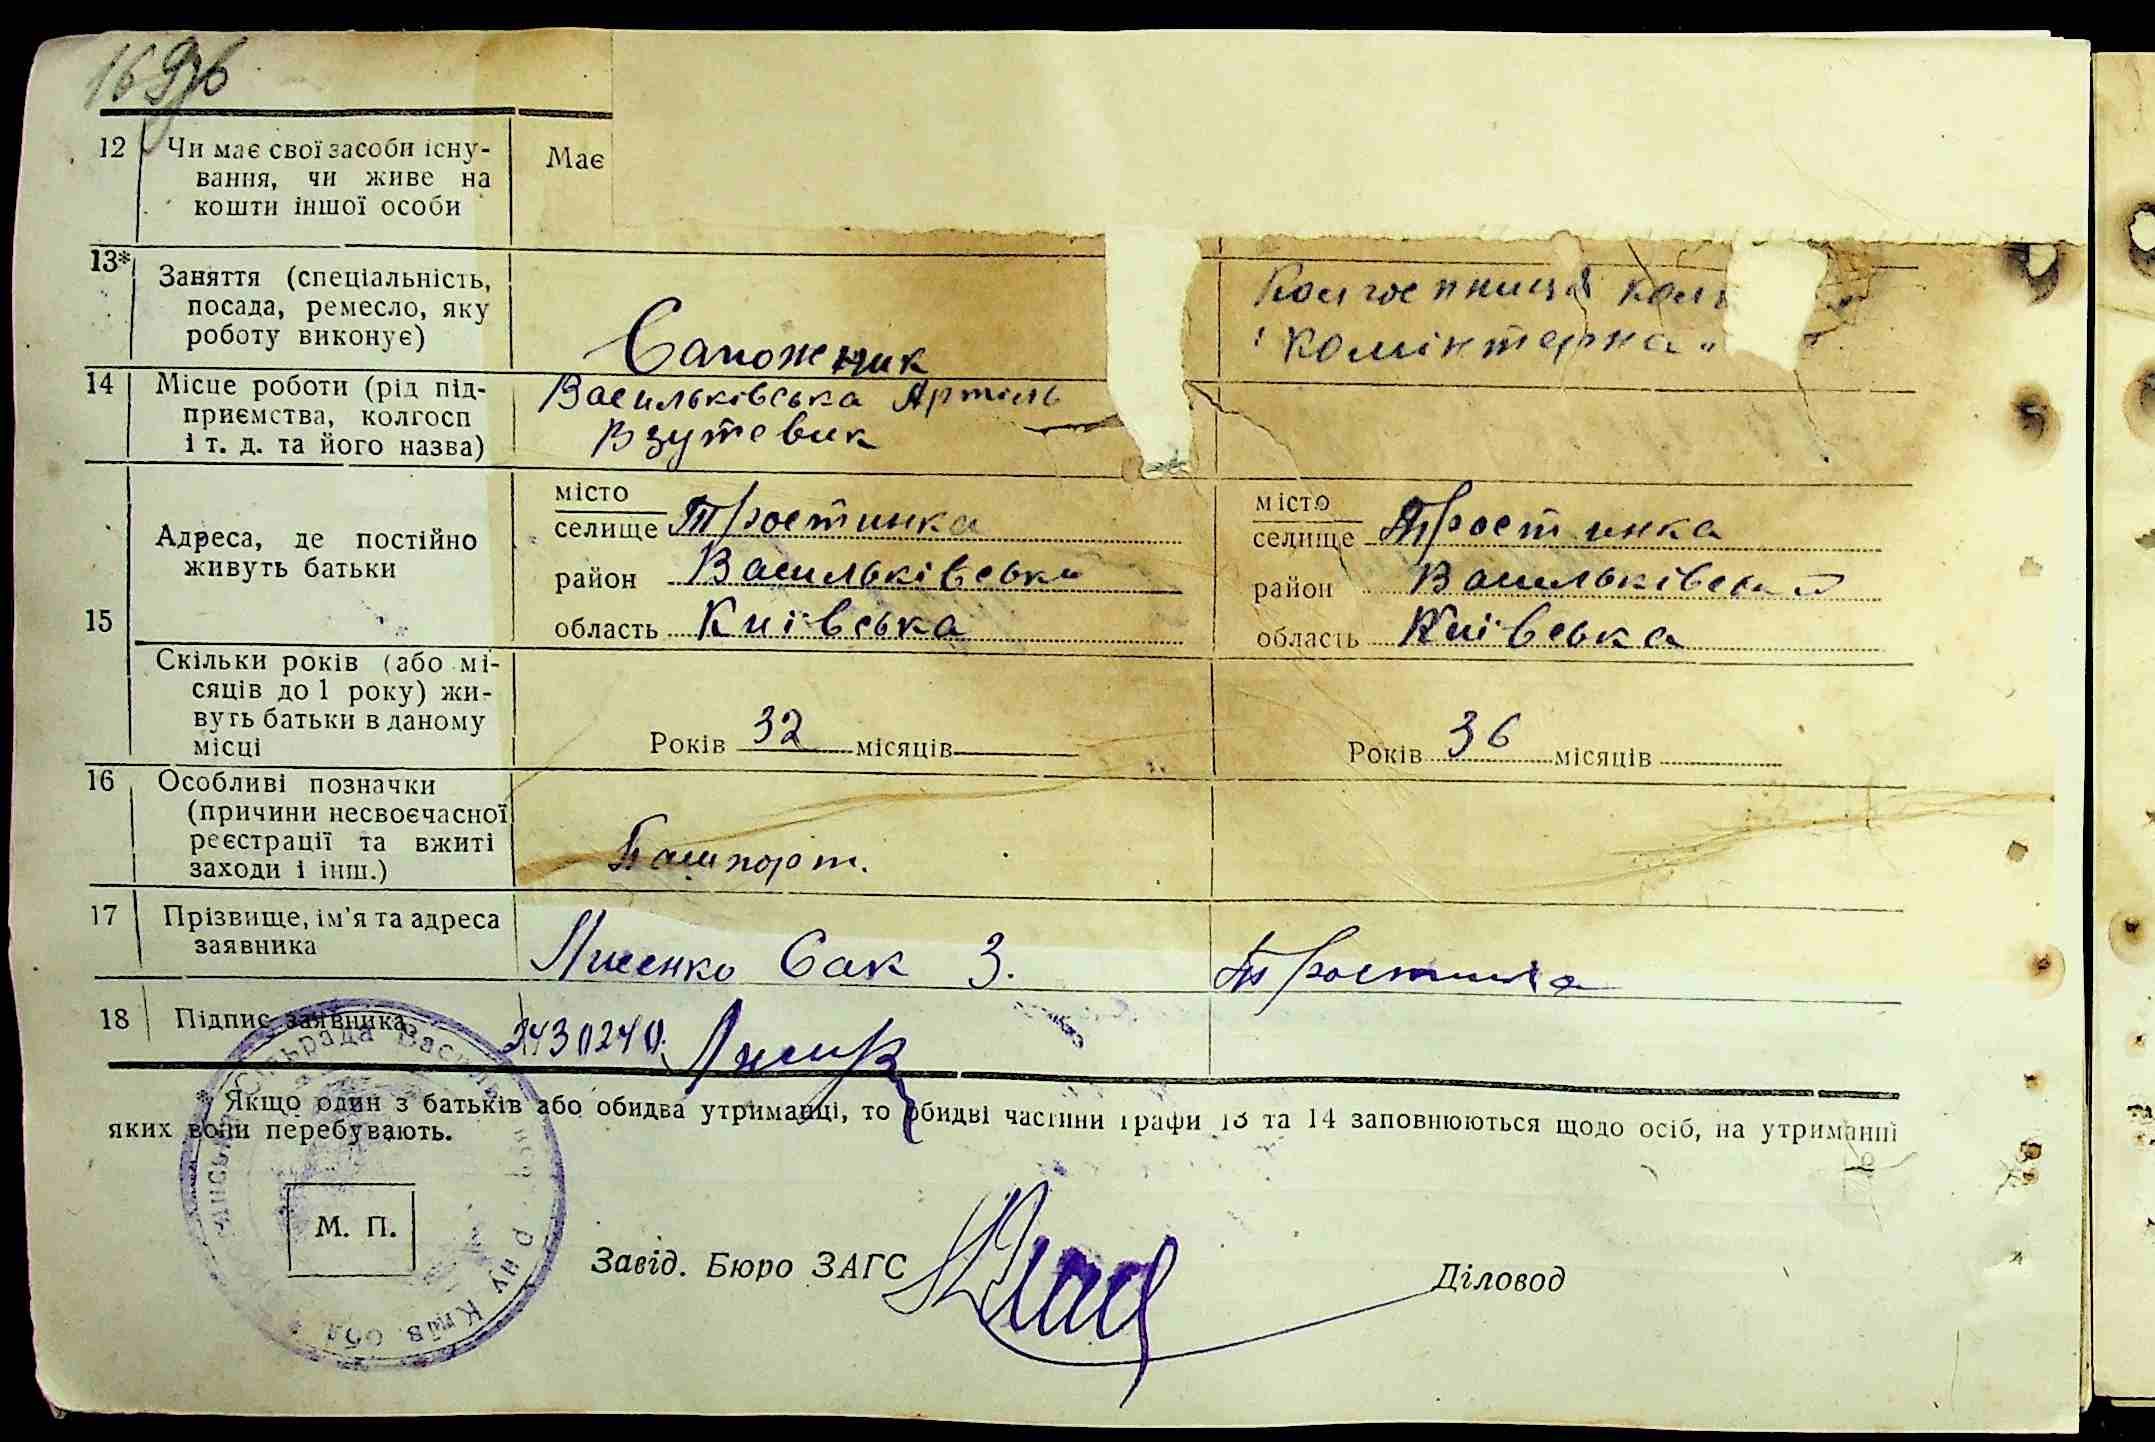 169зв
12 Чи має свої засоби існу- Має
вання, чи живе на
кошти іншої особи
13* Заняття (спеціальність, Колгоспниця кол
посада, ремесло, яку Комінтерна"
роботу виконує) Сапожник
14 Місце роботи (рід під- Васильківська Артіль
приємства, колгосп Взутевик
і т. д. та його назва)
15
Адреса, де постійно
живуть батьки
місто місто
селище Тростинка селище Тростинка
район Васильківськи район Васильківськи
область Київська область Київська
Скільки років (або мі-
сяців до 1 року) жи-
вуть батьки в даному
місці
Років 32 місяців Років 36 місяців
16 Особливі позначки
(причини несвоєчасної
реєстрації та вжиті
заходи і інш.) Пашпорт.
17 Прізвище, ім'я та адреса
заявника Лисенко Сак З. Тростинка
18 Підпис заявника
* Якщо один з батьків або обидва утриманці, то обидві частини графи 13 та 14 заповнюються щодо осіб, на утриманні
яких вони перебувають.
М. П.
Завід. Бюро ЗАГС Діловод